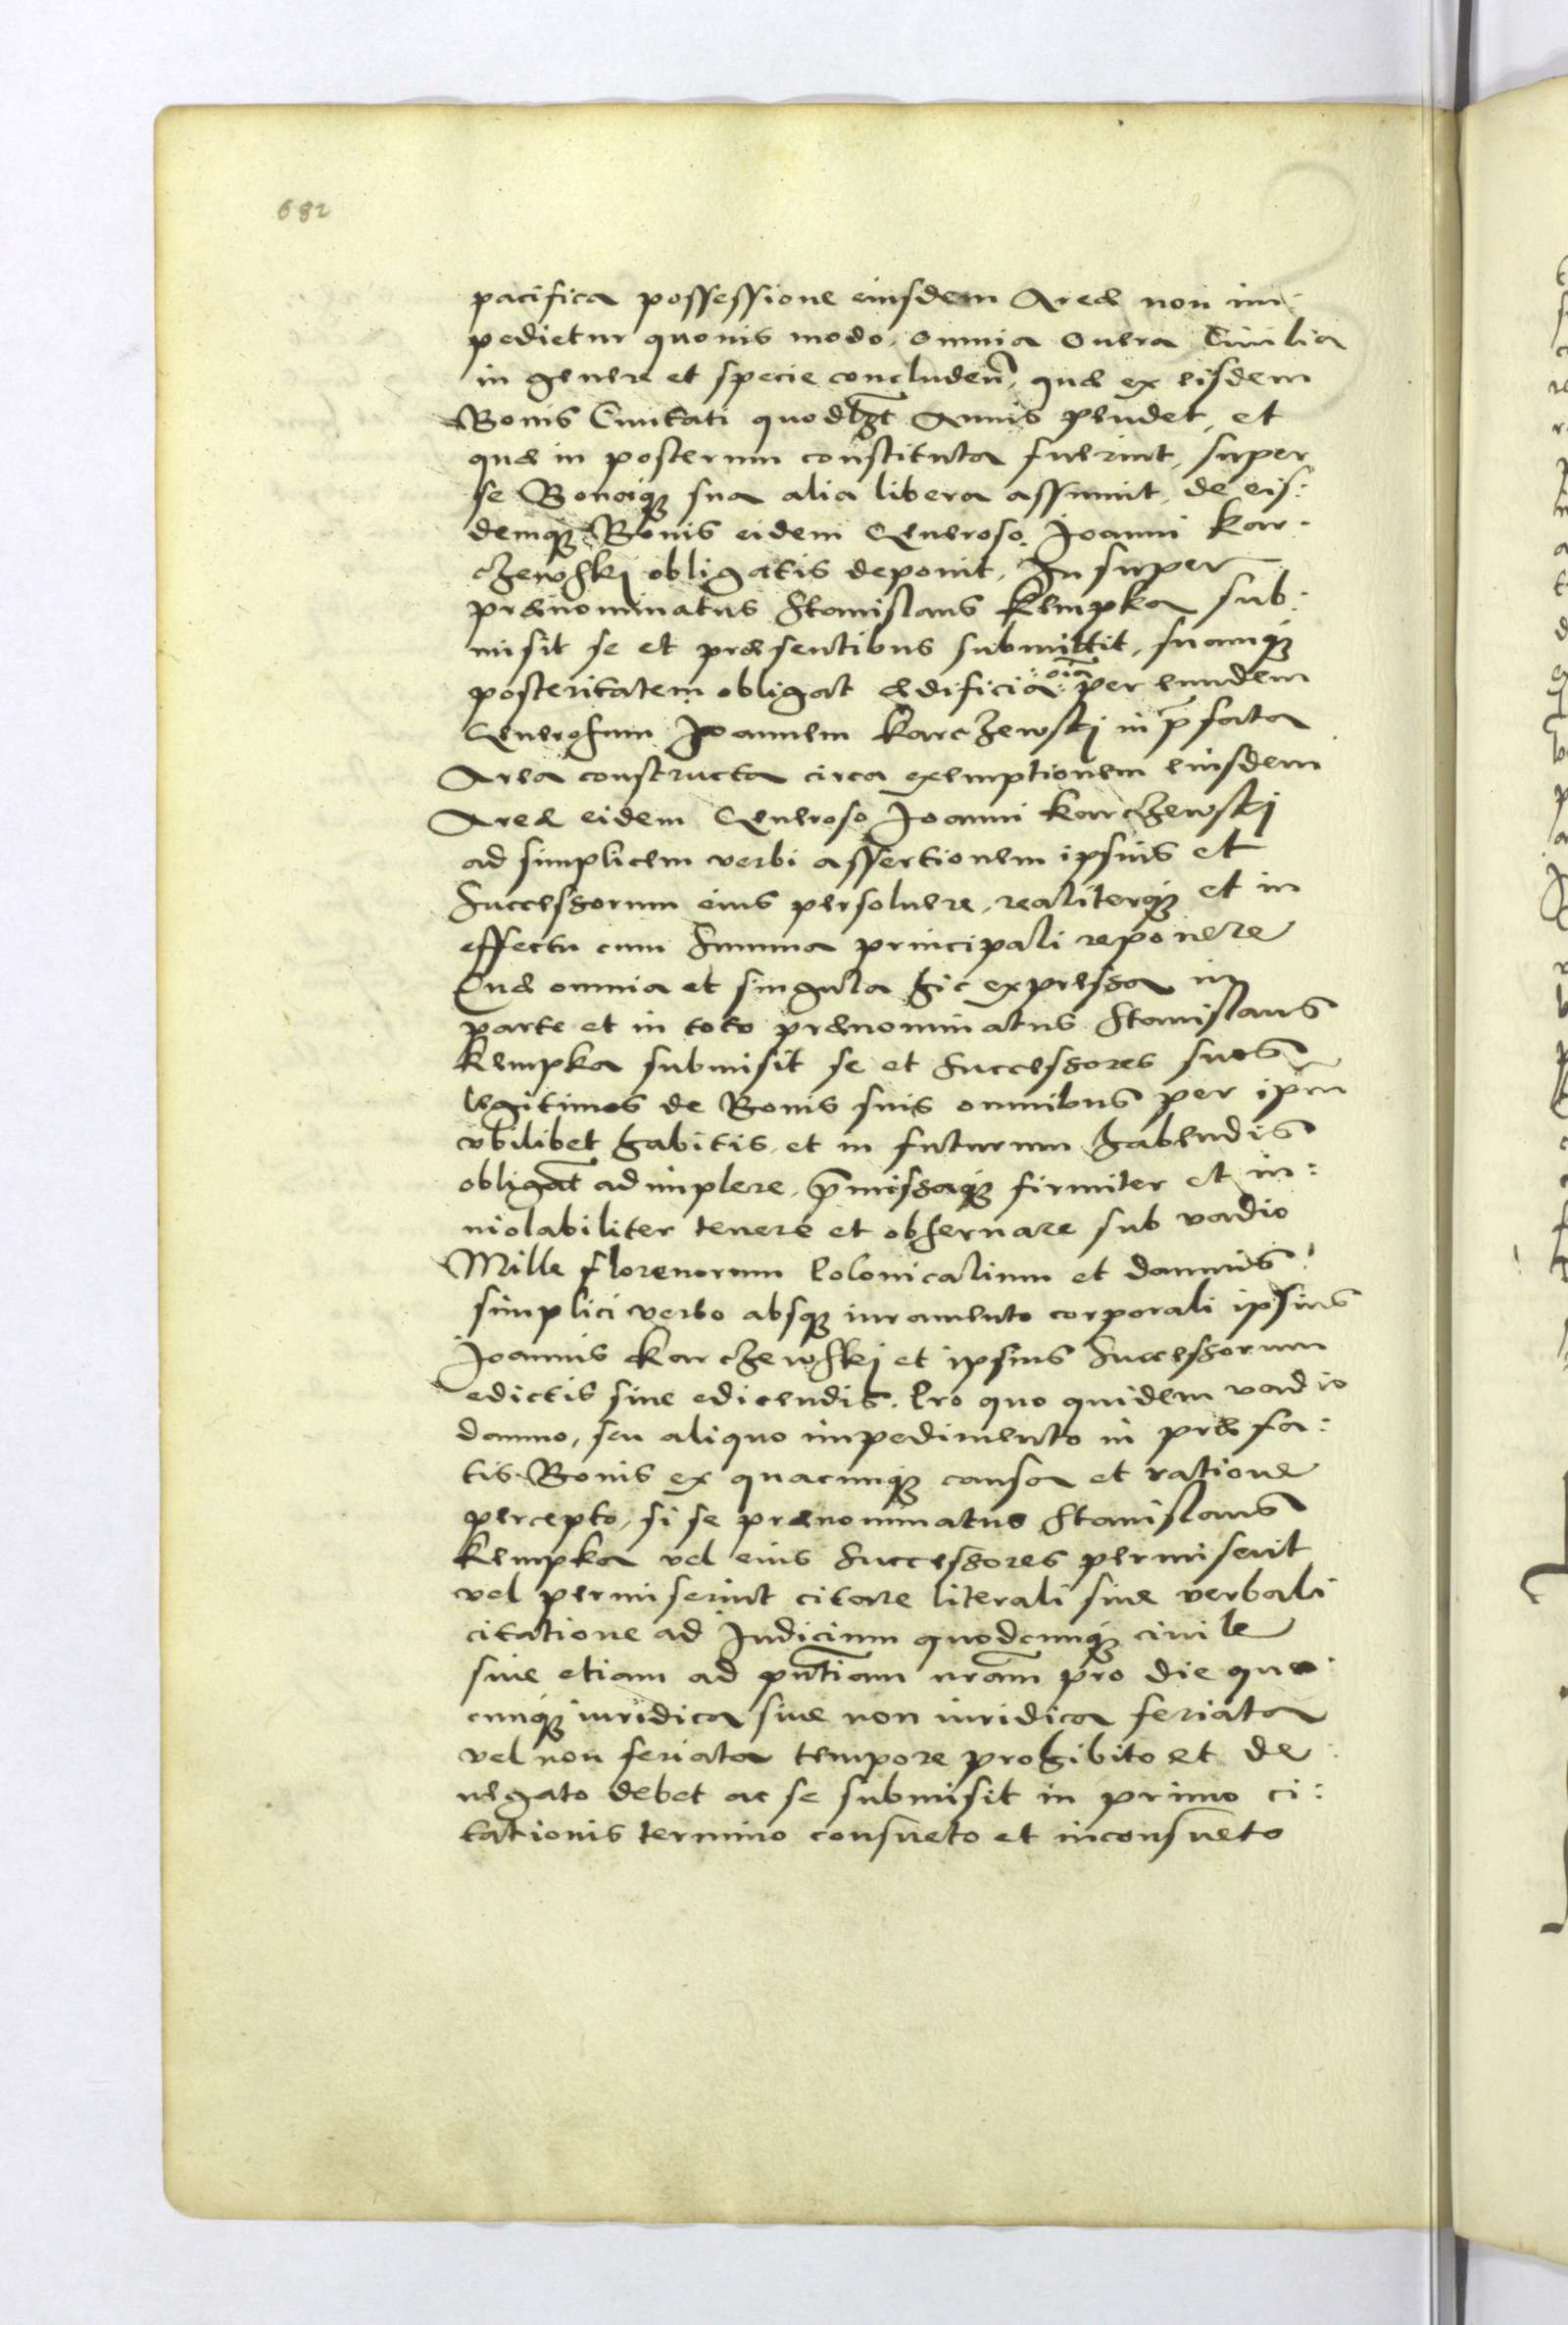 682
pacifica possessione eiusdem Areæ non im:
pedietur quouis modo, omnia onera Ciuilia
in genere et specie concluden̄, quæ ex eisdem
Bonis Ciuitati quodlzt Annis pendet, et
quæ in posterum constituta fuerint, super
se Bonaq; sua alia libera assumit, de eis:
demq; Bonis eidem Generoso Joanni Kar:
czewskj obligatis deponit, Insuper
prænominatus Stanislaus Kempka sub:
misit se et præsentibus submittit, suamq;
posteritatem obligat ædificia :oīa: per eundem
Generosum Joannem Karczewskj in p̄fata
Area constructa circa exemptionem eiusdem
Areæ eidem Generoso Joanni Karczewskj
ad simplicem verbi assertionem ipsius et
Successorum eius persoluere, realiterq; et in
effectu cum Summa principali reponere
Quæ omnia et singula hic expressa in
parte et in toto prænominatus Stanislaus
Kempka submisit se et Successores suos
legitimos de Bonis suis omnibus per ipm̄
vbilibet habitis, et in futurum habendis
obligat̄ adimplere, p̄missaq; firmiter et in:
uiolabiliter tenere et obseruare sub vadio
Mille florenorum Polonicalium et damnis
simplici verbo absq; iuramento corporali ipsius
Joannis Karczewskj et ipsius Successorum
edictis siue edicendis. Pro quo quidem vadio
damno, seu aliquo impedimento in præfa:
tis Bonis ex quacunq; causa et ratione
percepto, si se prænominatus Stanislaus
Kempka vel eius Successores permiserit
vel permiserint citare literali siue verbali
citatione ad Judicium quodcunq; ciuile
siue etiam ad pn̄tiam nr̄am pro die qua
cunq; iuridica siue non iuridica feriata
vel non feriata tempore prohibito et de:
negato debet ac se submisit in primo ci:
tationis termino consueto et inconsueto